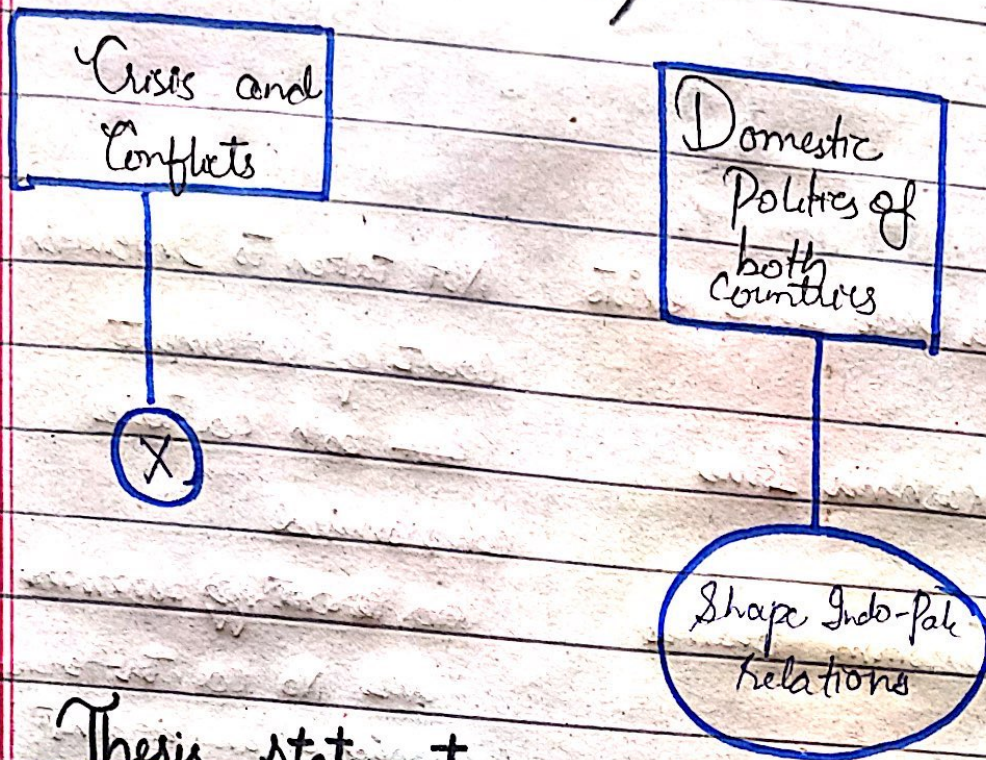 Crisis and
Conflicts
Domestic
Politics of
both
countries
X
Shape Indo-Pak
Relations
Thesis